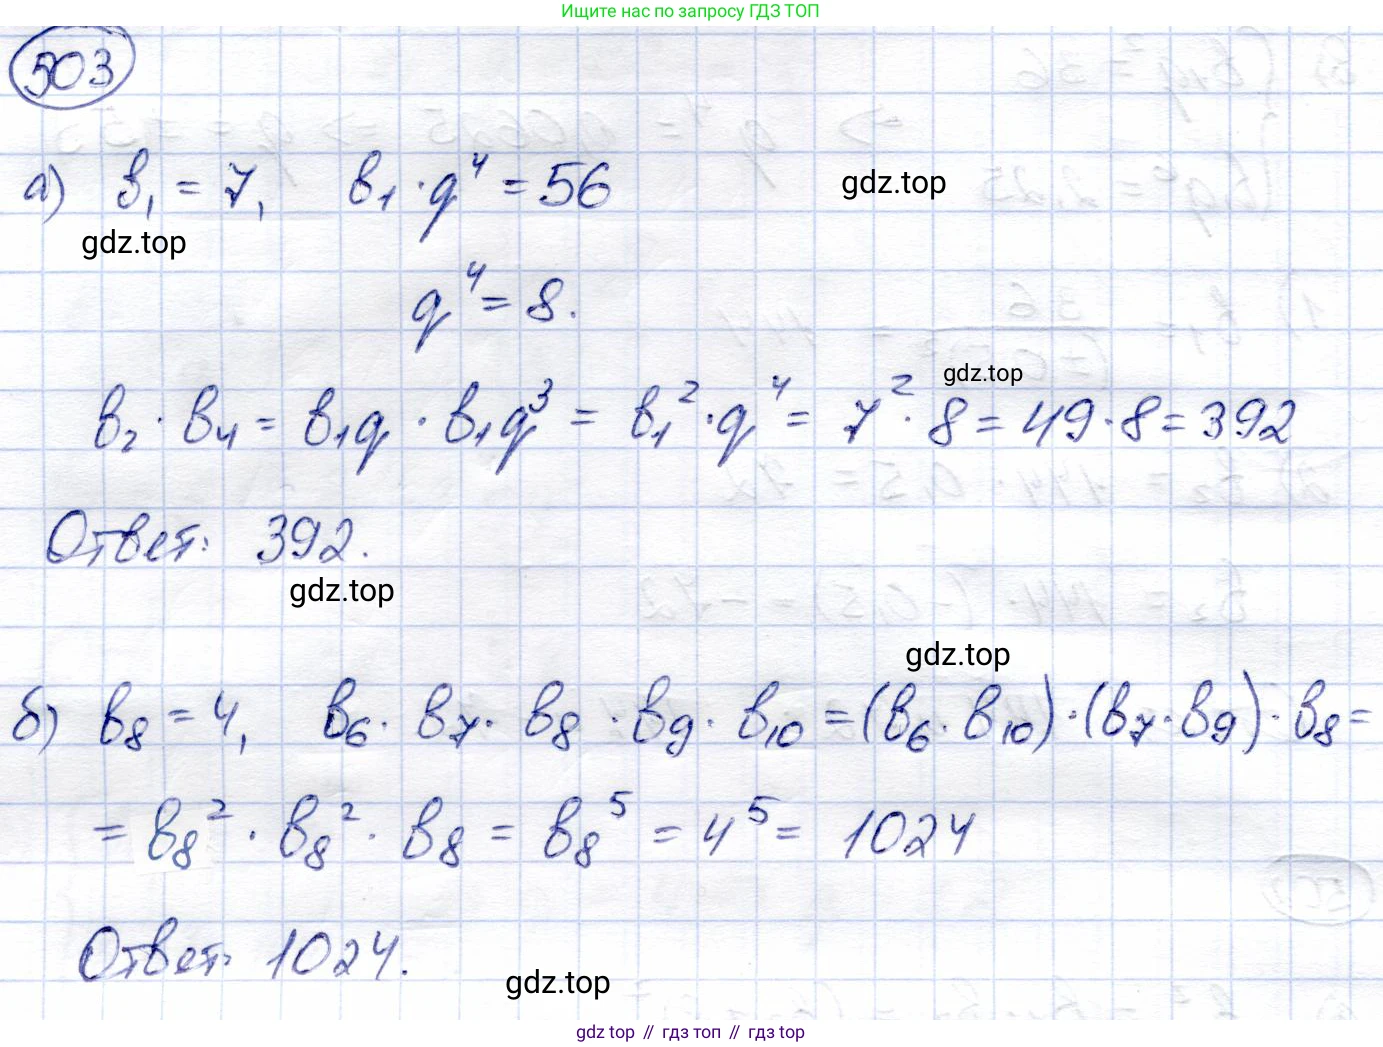 Ищите нас по запросу ГДЗ ТОП
503
а) b₁ = 7, b₁ · q⁴ = 56
gdz.top
gdz.top
q⁴ = 8.
gdz.top
b₂ · b₄ = b₁q · b₁q³ = b₁² · q⁴ = 7² · 8 = 49 · 8 = 392
Ответ: 392.
gdz.top
gdz.top
б) b₈ = 4, b₆ · b₇ · b₈ · b₉ · b₁₀ = (b₆ · b₁₀) · (b₇ · b₉) · b₈ =
= b₈² · b₈² · b₈ = b₈⁵ = 4⁵ = 1024
Ответ: 1024.
gdz.top
gdz top // гдз топ // gdz top